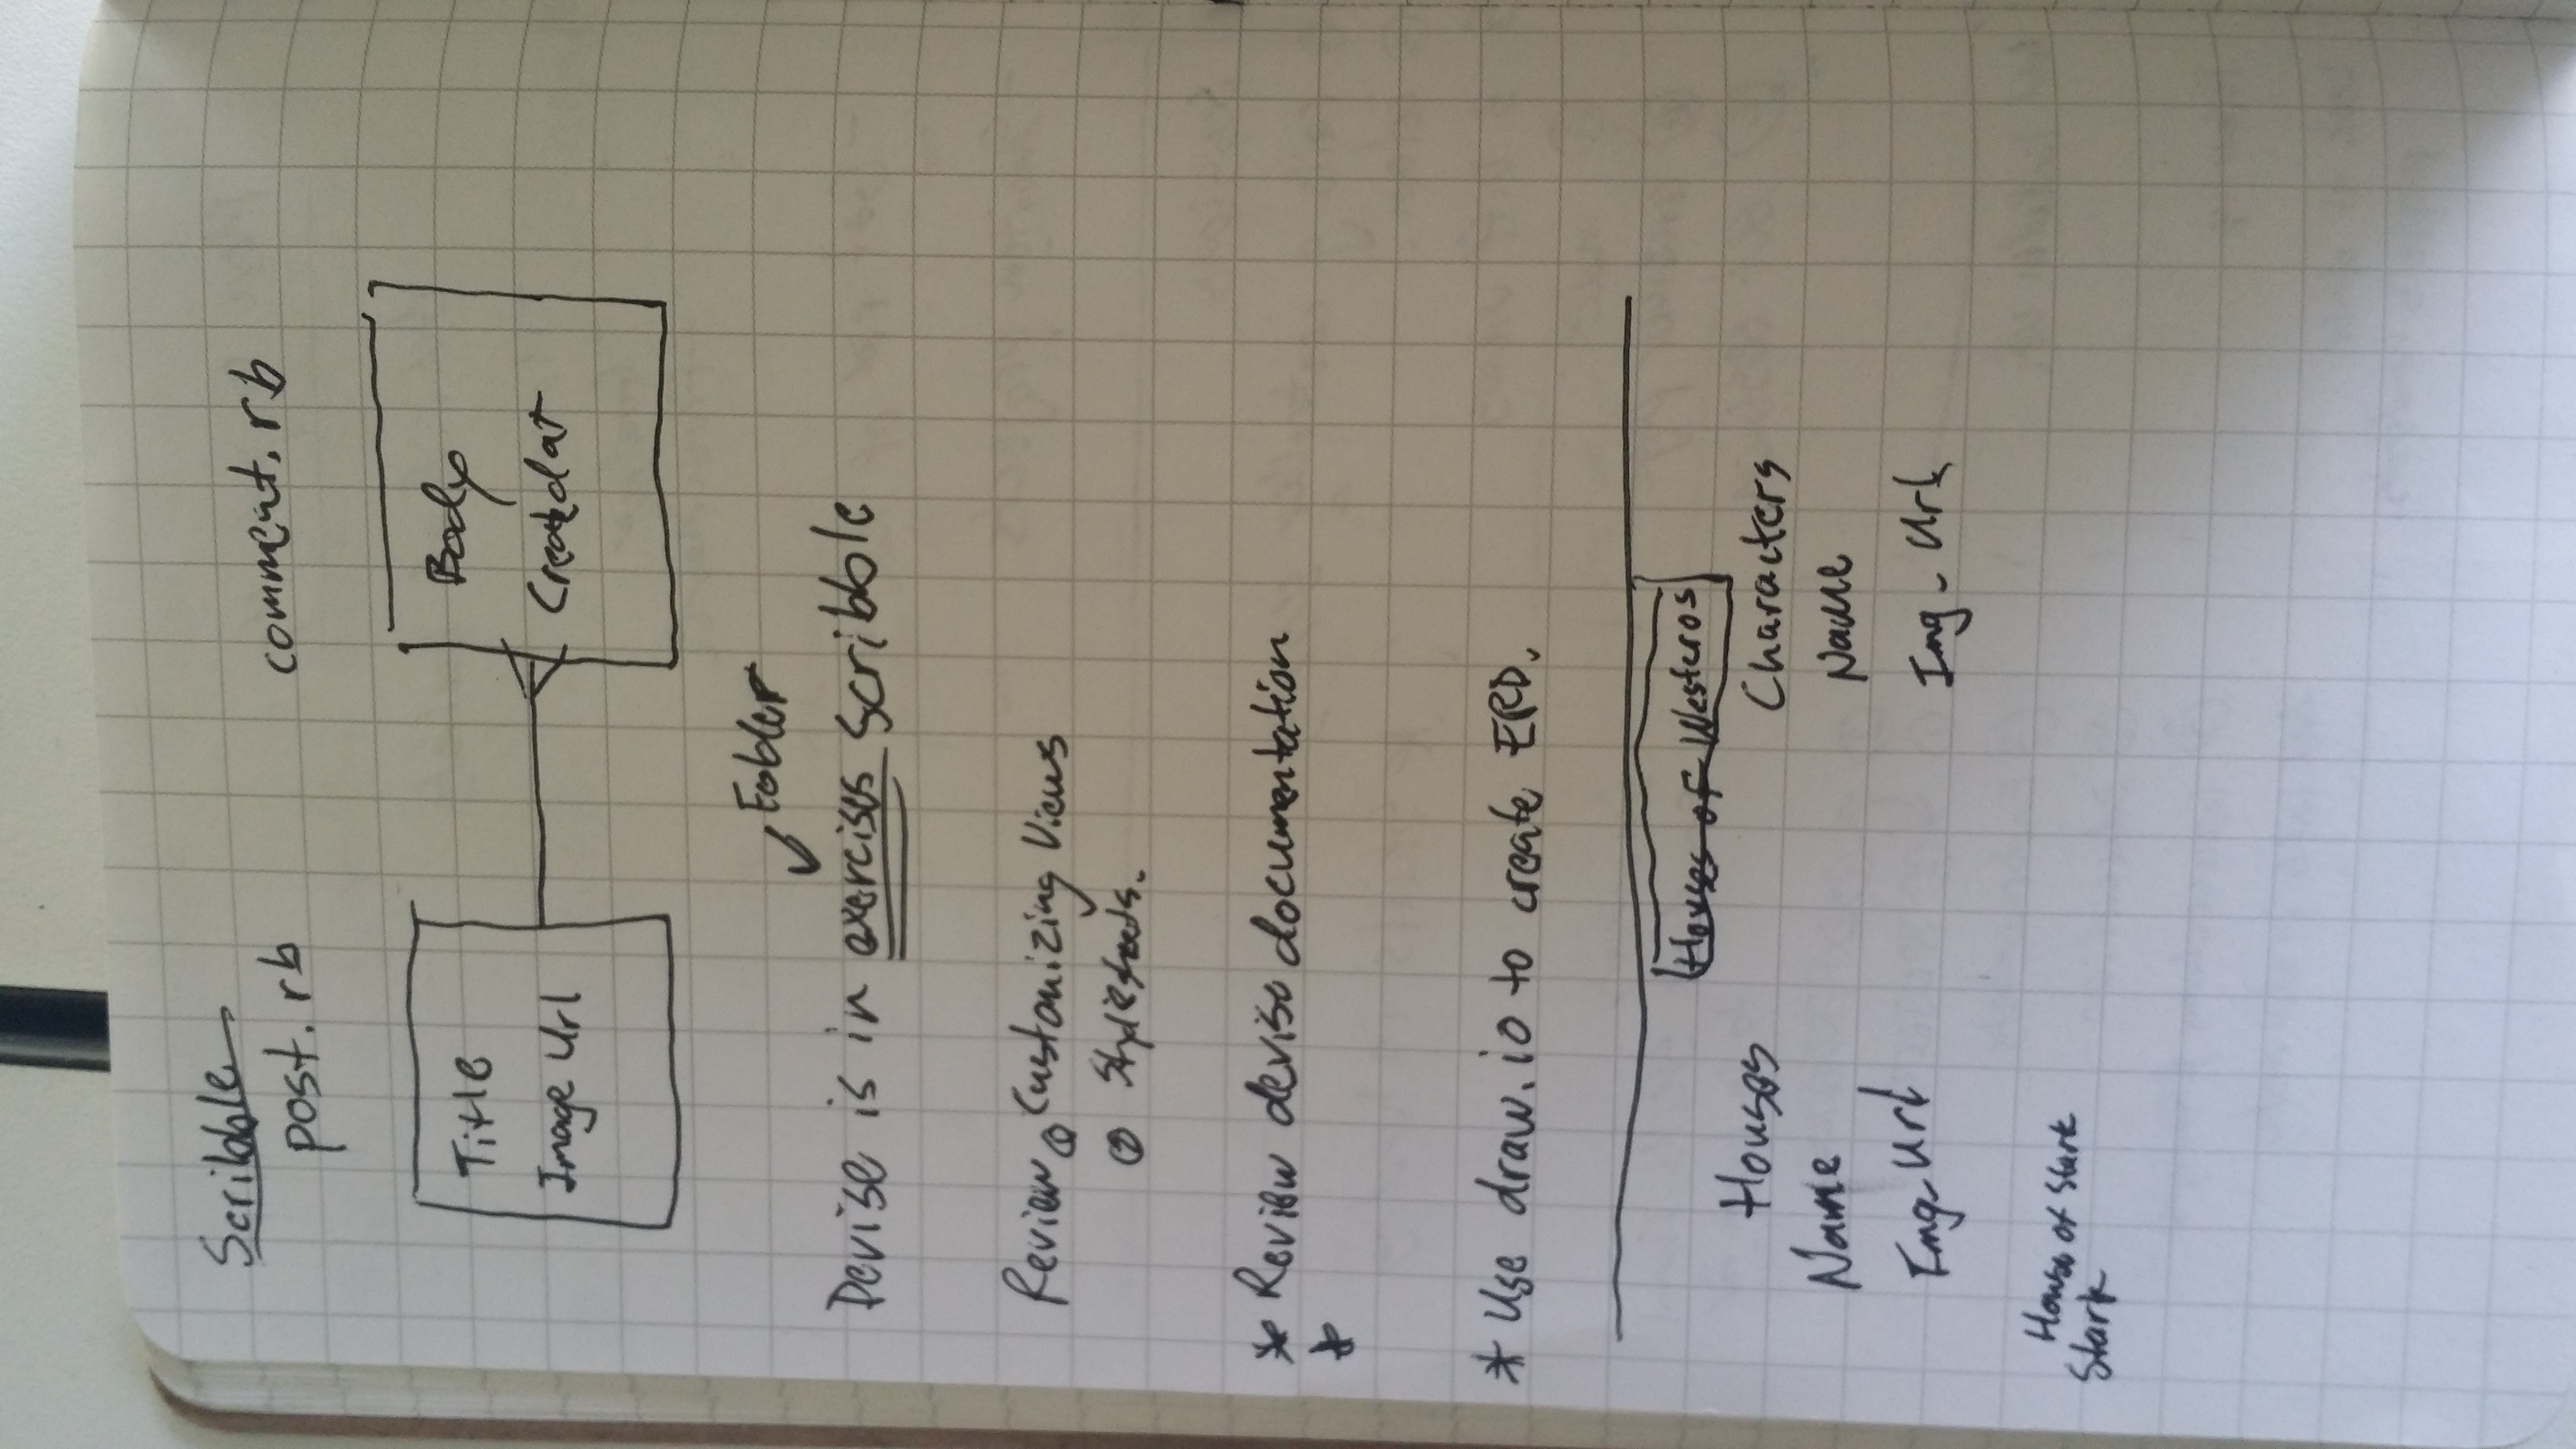 Scribble
post.rb
comment.rb
Title
Image Url
Body
Created at
Devise is in exercises scribble
Review ① Customizing Views
② Stylesheets.
* Review devise documentation
*
* Use draw.io to create ERD.
Houses of Westeros
Houses
Characters
Name
Name
Img_Url
Img_Url
House of Stark
Stark